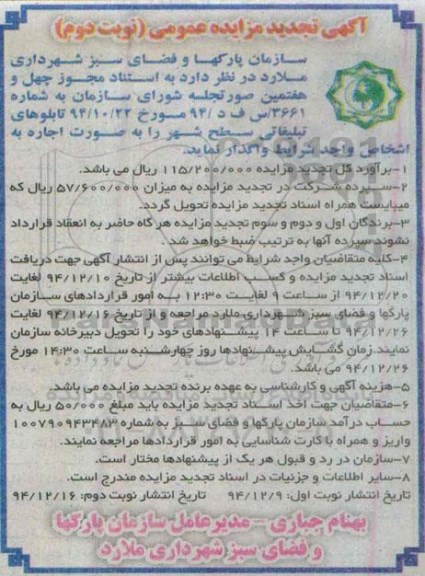 آگهی تجدید مزایده عمومی (نوبت دوم)
سازمان پارکها و فضای سبز شهرداری
ملارد در نظر دارد به استناد مجوز چهل و
هفتمین صورتجلسه شورای سازمان به شماره
۳۶۶۱/س ف د /۹۴ مورخ ۹۴/۱۰/۲۲ تابلوهای
تبلیغاتی سطح شهر را به صورت اجاره به
اشخاص واجد شرایط واگذار نماید.
۱-برآورد کل تجدید مزایده ۱۱۵/۲۰۰/۰۰۰ ریال می باشد.
۲-سپرده شرکت در تجدید مزایده به میزان ۵۷/۶۰۰/۰۰۰ ریال که
میبایست همراه اسناد تجدید مزایده تحویل گردد.
۳-برندگان اول و دوم و سوم تجدید مزایده هر گاه حاضر به انعقاد قرارداد
نشوند سپرده آنها به ترتیب ضبط خواهد شد.
۴-کلیه متقاضیان واجد شرایط می توانند پس از انتشار آگهی جهت دریافت
اسناد تجدید مزایده و کسب اطلاعات بیشتر از تاریخ ۹۴/۱۲/۱۰ لغایت
۹۴/۱۲/۲۰ از ساعت ۹ لغایت ۱۲:۳۰ به امور قراردادهای سازمان
پارکها و فضای سبز شهرداری ملارد مراجعه و از تاریخ ۹۴/۱۲/۱۶ لغایت
۹۴/۱۲/۲۶ تا ساعت ۱۴ پیشنهادهای خود را تحویل دبیرخانه سازمان
نمایند.زمان گشایش پیشنهادها روز چهارشنبه ساعت ۱۴:۳۰ مورخ
۹۴/۱۲/۲۶ می باشد.
۵-هزینه آگهی و کارشناسی به عهده برنده تجدید مزایده می باشد.
۶-متقاضیان جهت اخذ اسناد تجدید مزایده باید مبلغ ۵۰/۰۰۰ ریال به
حساب درآمد سازمان پارکها و فضای سبز به شماره ۱۰۰۷۹۰۹۴۳۴۸۳
واریز و همراه با کارت شناسایی به امور قراردادها مراجعه نمایند.
۷-سازمان در رد و قبول هر یک از پیشنهادها مختار است.
۸-سایر اطلاعات و جزئیات در اسناد تجدید مزایده مندرج است.
تاریخ انتشار نوبت اول: ۹۴/۱۲/۹ تاریخ انتشار نوبت دوم: ۹۴/۱۲/۱۶
بهنام جباری – مدیرعامل سازمان پارکها
و فضای سبز شهرداری ملارد